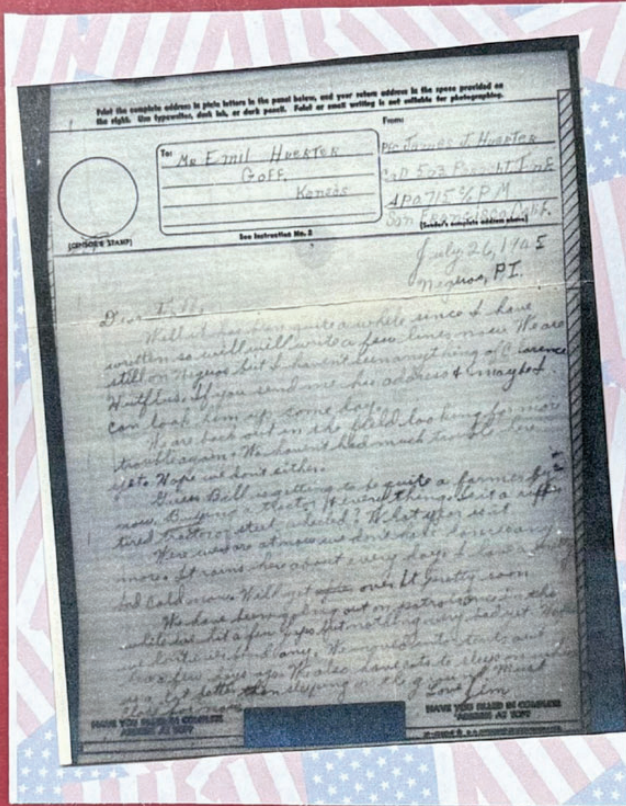 Print the complete address in plain letters in the panel below, and your return address in the space provided on
the right. Use typewriter, dark ink, or dark pencil. Faint or small writing is not suitable for photographing.
To:
From:
Mr Emil Huerter
Goff,
Kansas
Pfc James J. Huerter
Co D 503 Parcht Inf
APO 715 % P M
San Francisco Calif.
(CENSOR'S STAMP)
See Instruction No. 2
(Sender's complete address above)
July 26, 1945
Negros, P.I.
Dear
Well it has been quite a while since I have
written so will write a few lines now. We are
still on Negros but I haven't seen anything of Clarence
If you send me his address I maybe I
can look him up some day.
We are back out in the field looking for more
trouble again. We haven't had much trouble here
yet. Hope we don't either.
Guess Bill is getting to be quite a farmer
now. Buying a tractor & everything. Is it a
tired tractor or steel wheeled? What
Here we are at now we don't have
more. It rains here about every day. I have a
bad cold now. Will get over it pretty soon
We have been going out on patrols once in the
while we hit a few Japs but nothing very bad yet. Hope
we don't ever find any. We
a few days ago. We also have cots to sleep on
is a lot better than sleeping on the ground. Must
close for now
Love Jim
HAVE YOU FILLED IN COMPLETE
ADDRESS AT TOP?
HAVE YOU FILLED IN COMPLETE
ADDRESS AT TOP?